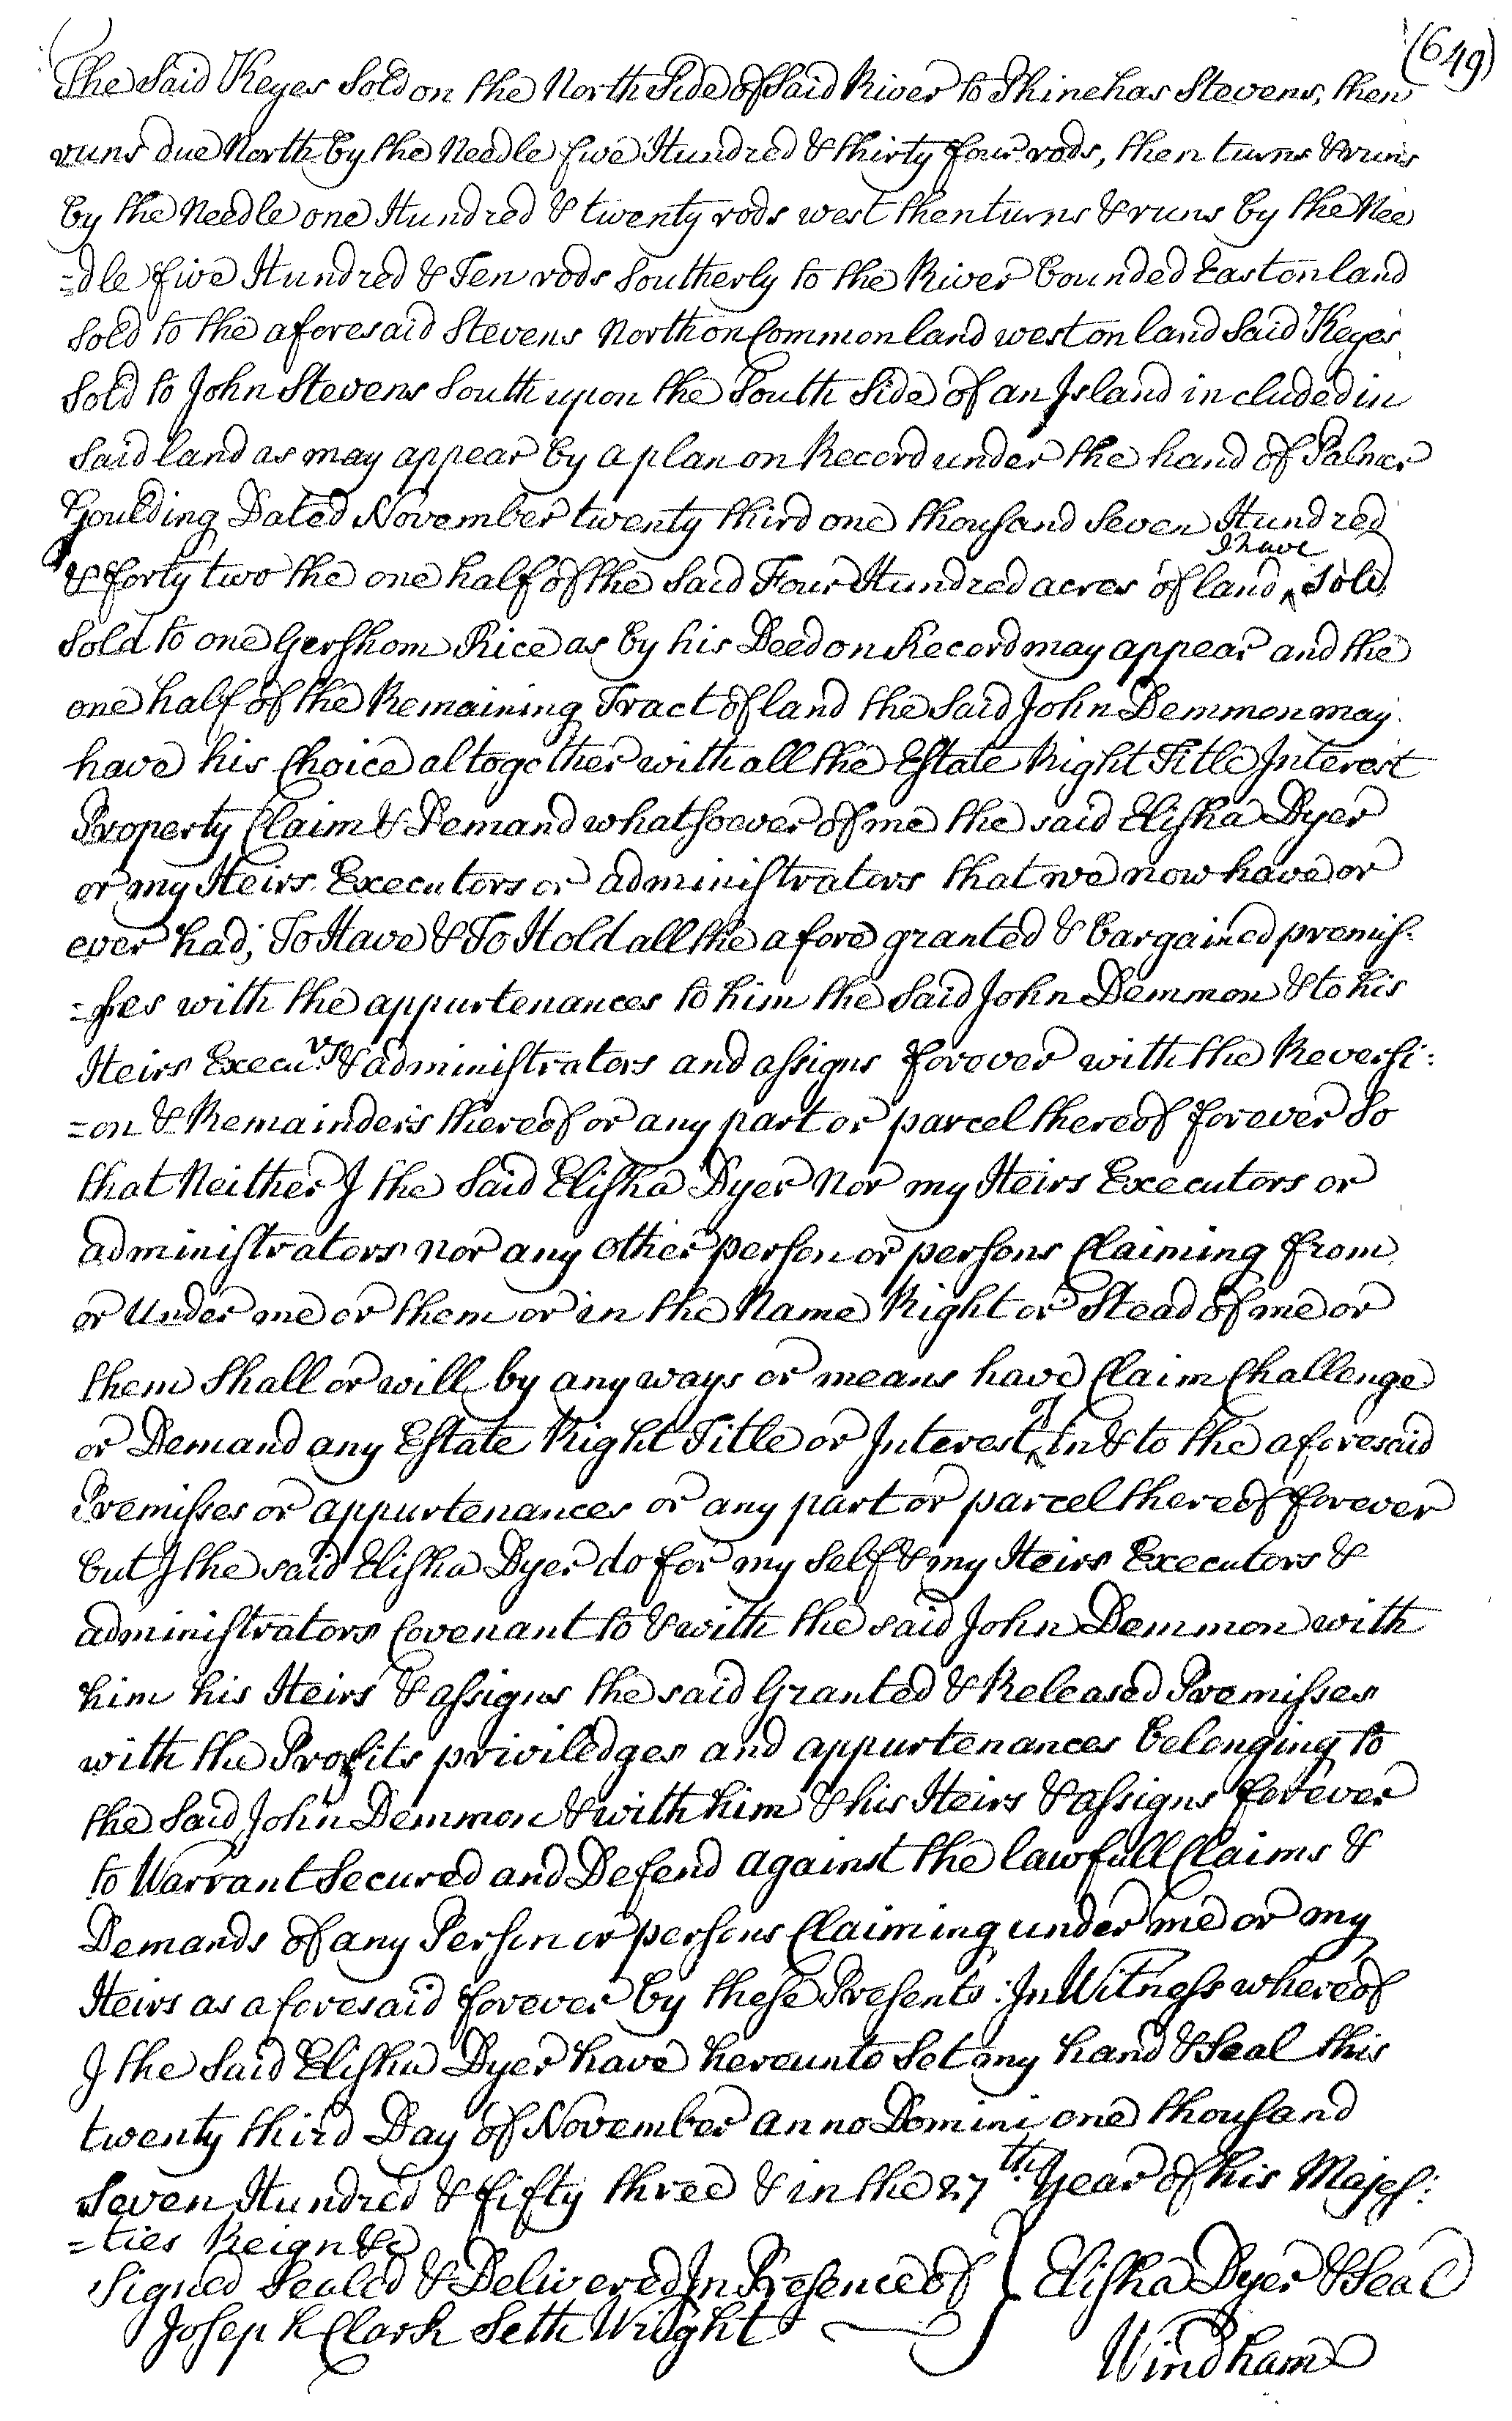 (649)
The Said Keyes Sold on the North Side of Said River to Phinehas Stevens, then
runs due North by the Needle five Hundred & thirty four rods, then turns & runs
by the Needle one Hundred & twenty rods west then turns & runs by the Nee
=dle five Hundred & Ten rods Southerly to the River bounded East on land
Sold to the aforesaid Stevens North on Common land west on land Said Keyes
Sold to John Stevens South upon the South Side of an Island included in
Said land as may appear by a plan on Record under the hand of Palmer
Goulding Dated November twenty third one thousand Seven Hundred
I have
& forty two the one half of the Said Four Hundred acres of land ‸ Sold
Sold to one Gershom Rice as by his Deed on Record may appear and the
one half of the Remaining Tract of land the Said John Demmon may
have his Choice altogether with all the Estate Right Title Interest
Property Claim & Demand whatsoever of me the said Elisha Dyer
or my Heirs Executors or administrators that we now have or
ever had; To Have & To Hold all the afore granted & bargained premis:
=ses with the appurtenances to him the Said John Demmon & to his
Heirs Execurs & administrators and assigns forever with the Reversi:
=on & Remainders thereof or any part or parcel thereof forever So
that Neither I the Said Elisha Dyer Nor my Heirs Executors or
administrators nor any other person or persons Claiming from
or Under me or them or in the Name Right or Stead of me or
them Shall or will by any ways or means have Claim Challenge
of
or Demand any Estate Right Title or Interest ‸ in & to the aforesaid
Premisses or appurtenances or any part or parcel thereof forever
but I the said Elisha Dyer do for my Self & my Heirs Executors &
administrators Covenant to & with the said John Demmon with
him his Heirs & assigns the said Granted & Released Premisses
with the Profits priviledges and appurtenances belonging to
the Said John Demmon & with him & his Heirs & assigns forever
to Warrant Secured and Defend against the lawfull Claims &
Demands of any Person or persons Claiming under me or my
Heirs as aforesaid forever by these Presents: In Witness whereof
I the Said Elisha Dyer have hereunto Set my hand & Seal this
twenty third Day of November anno Domini one thousand
Seven Hundred & fifty three & in the 27th Year of his Majes:
=ties Reign &c
Signed Sealed & Delivered In Presence of } Elisha Dyer & Seal
Joseph Clark Seth Wright
Windham